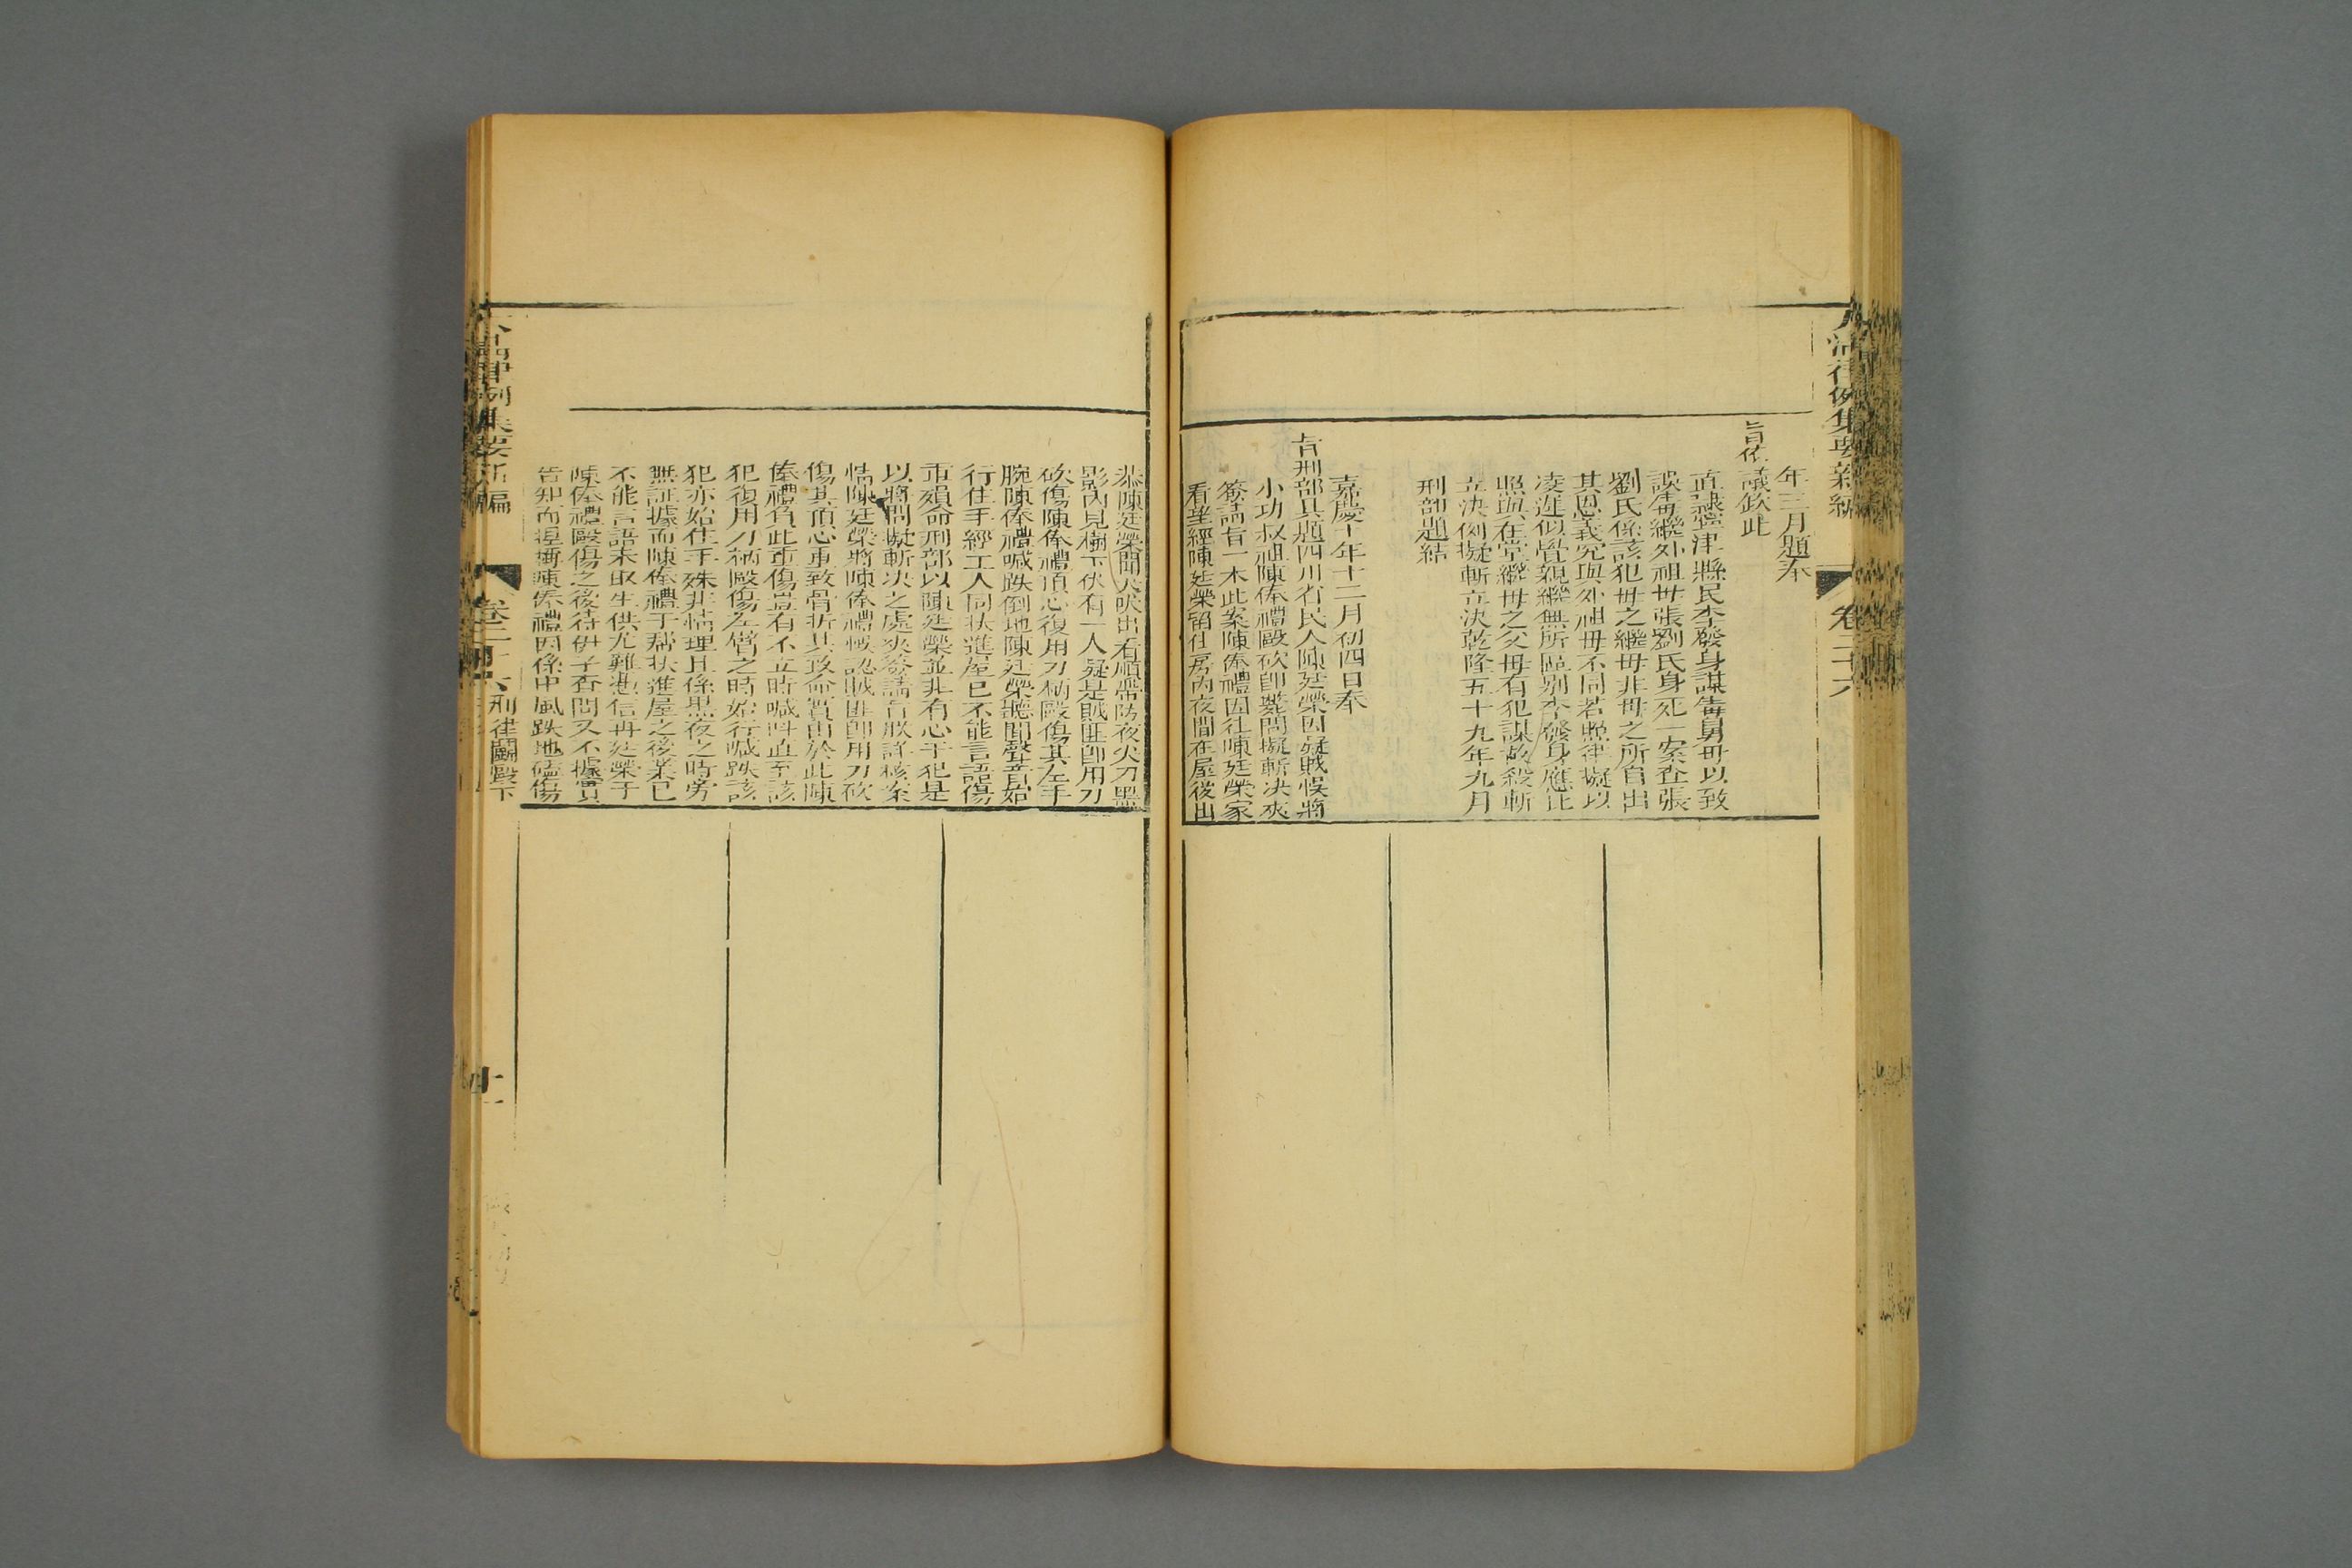 大清律例集要新編
卷二十六
年三月題奉
旨依議欽此
直隸寧津縣民李發身謀毒舅母以致
誤毒繼外祖母張劉氏身死一案查張
劉氏係該犯母之繼母非母之所自出
其恩義究與外祖母不同若照律擬以
凌遲似覺親繼無所區别李發身應比
照與在堂繼母之父母有犯謀故殺斬
立決例擬斬立決乾隆五十九年九月
刑部題結
嘉慶十年十二月初四日奉
旨刑部具題四川省民人陳廷榮因疑賊悞將
小功叔祖陳俸禮毆砍即斃問擬斬決夾
簽請旨一本此案陳俸禮因往陳廷榮家
看望經陳廷榮留住房內夜間在屋後出
恭陳廷榮聞犬吠出看順帶防夜尖刀黑
影內見樹下伏有一人疑是賊匪即用刀
砍傷陳俸禮頂心復用刀柄毆傷其左手
腕陳俸禮喊跌倒地陳廷榮聽聞聲音始
行住手經工人同扶進屋已不能言語傷
重殞命刑部以陳廷榮並非有心干犯是
以將問擬斬決之處夾簽請旨朕詳核案
情陳廷榮將陳俸禮悞認賊匪即用刀砍
傷其頂心重致骨折其致命實由於此陳
俸禮負此重傷豈有不立時喊呌直至該
犯復用刀柄毆傷左臂之時始行喊跌該
犯亦始住手殊非情理且係黑夜之時旁
無証據而陳俸禮于幫扶進屋之後業已
不能言語未取生供尤難憑信毋廷榮子
陳俸禮毆傷之後待伊子查問又不據實
告知而捏稱陳俸禮因係中風跌地磕傷
大清律例集要新編
卷二十六
刑律鬬毆下